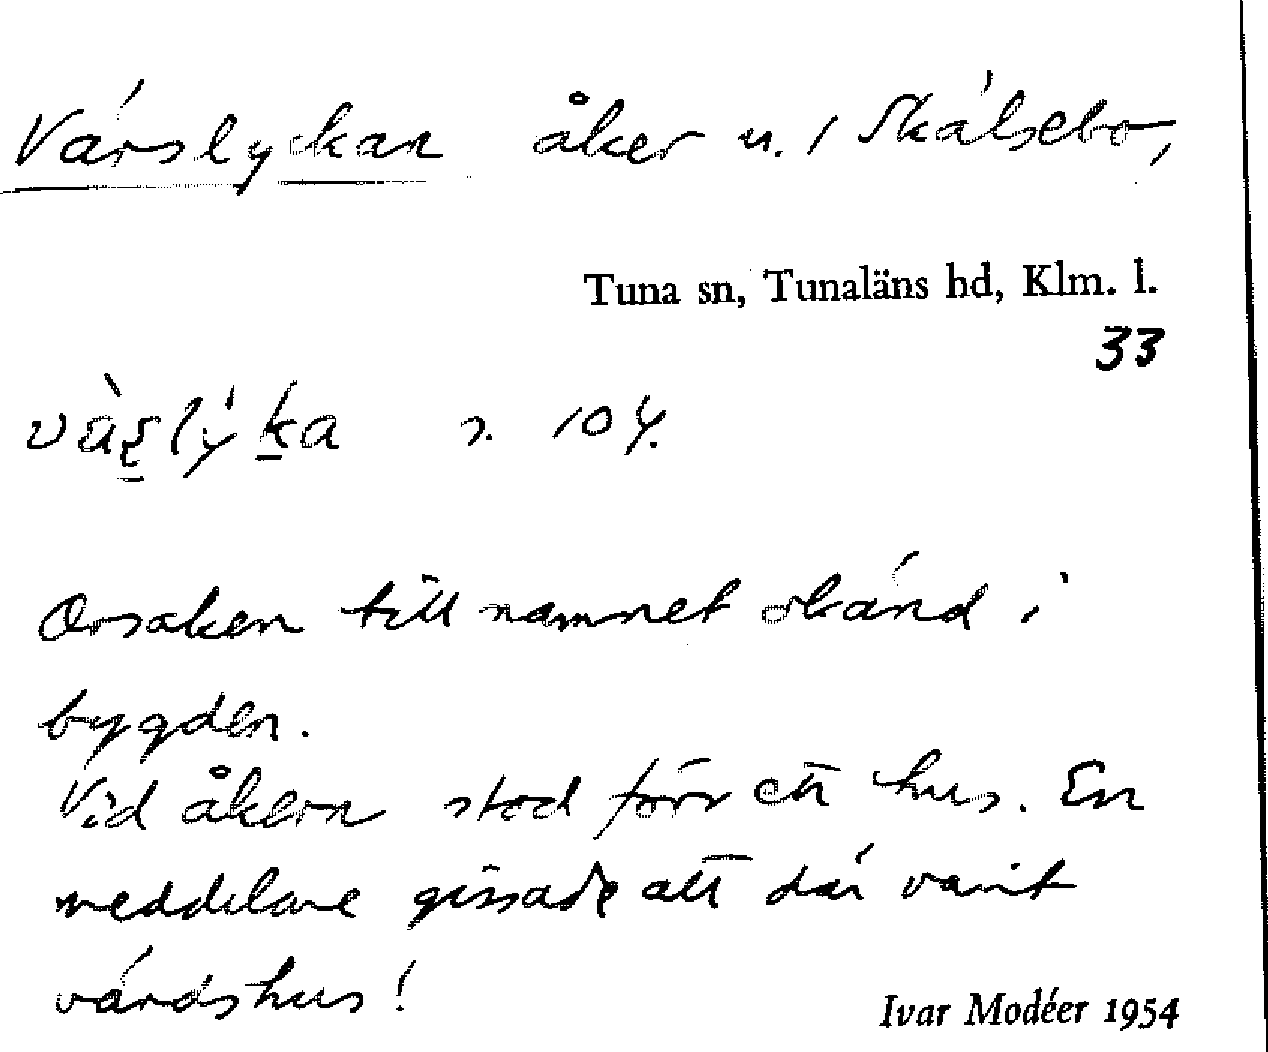 Värslyckan åker u. / Skälsebo,
Tuna sn, Tunaläns hd, Klm. l.
33
s. 104.
Orsaken till namnet okänd i
bygden.
Vid åkern stod förr ett hus. En
meddelare gissade att där varit
värdshus!
Ivar Modéer 1954